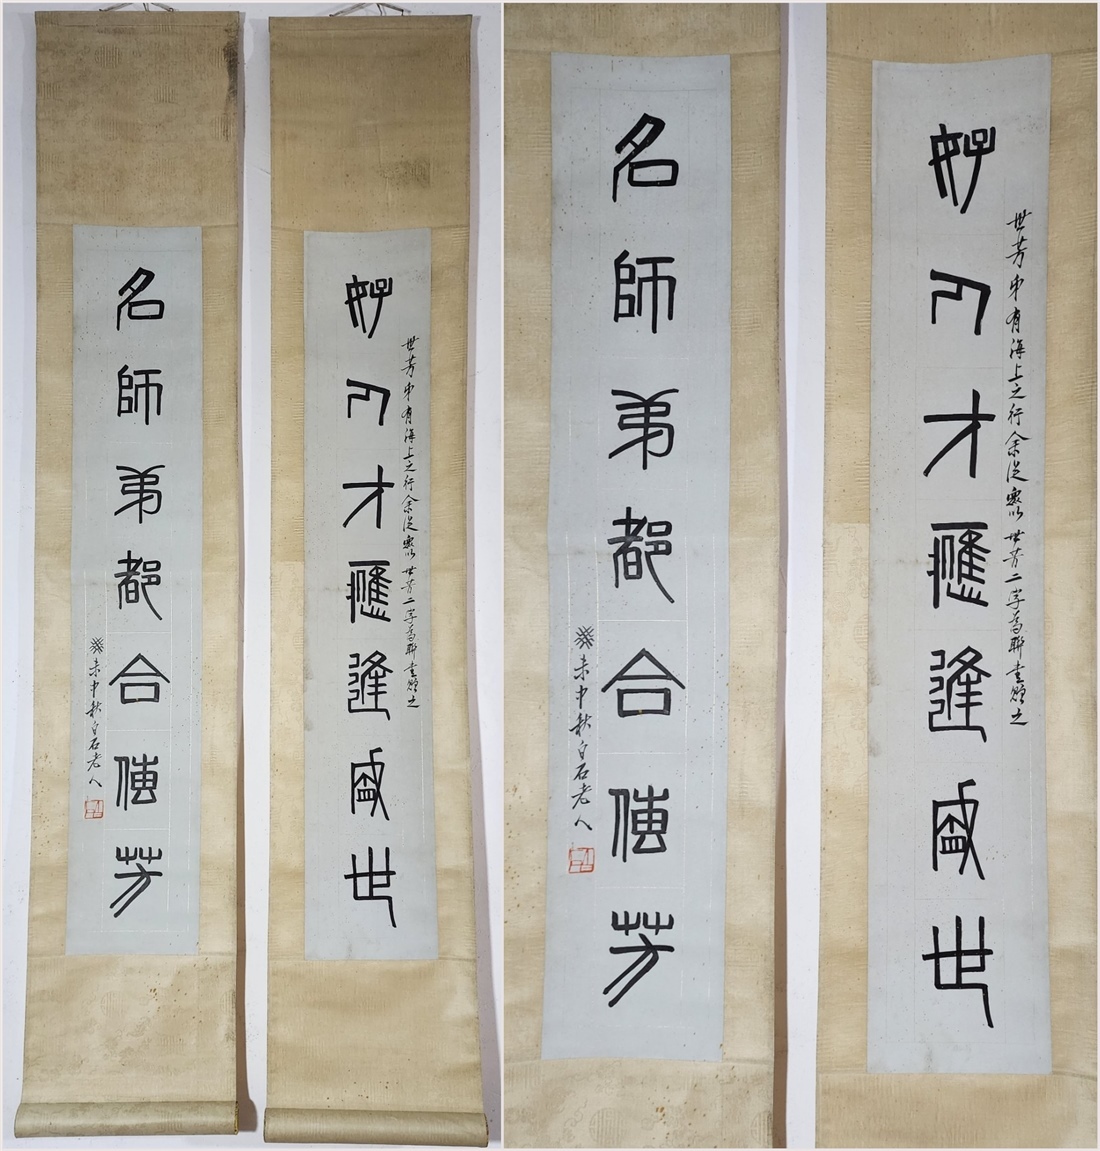 好乃才應逢盛世
世芳弟有海上之行余從衆以世芳二字為聯書贈之
名師弟都合傳芳
癸未中秋白石老人
好乃才應逢盛世
世芳弟有海上之行余從衆以世芳二字為聯書贈之
名師弟都合傳芳
癸未中秋白石老人